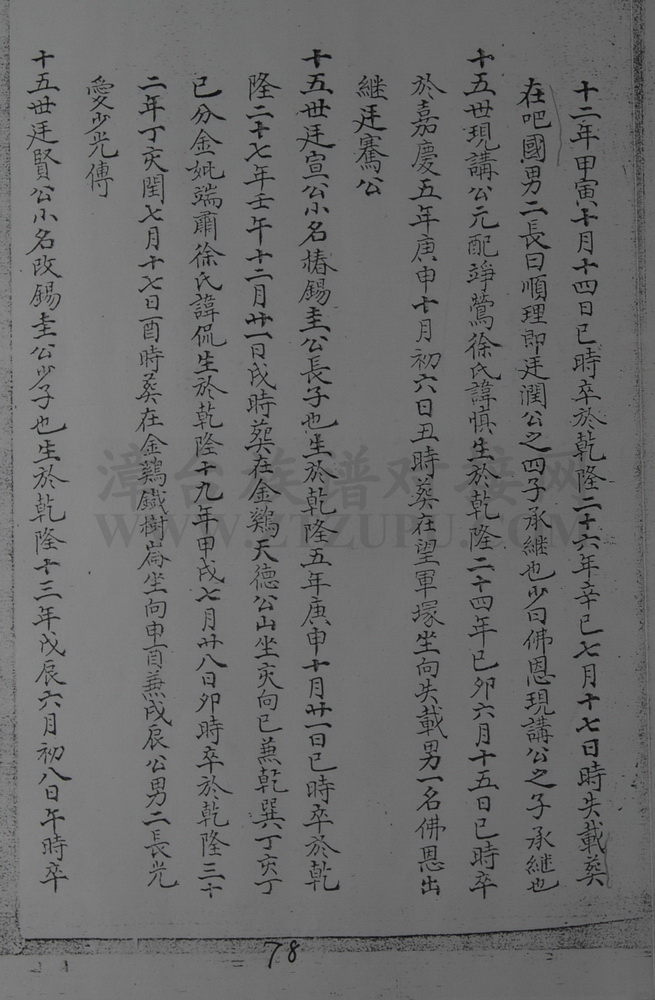 十二年甲寅十月十四日巳時卒於乾隆二十六年辛巳七月十七日時失載葬
在吧國男二長曰順理即廷潤公之四子承繼也少曰佛恩現講公之子承繼也
十五世現講公元配竫鶯徐氏諱慎生於乾隆二十四年己卯六月十五日巳時卒
於嘉慶五年庚申十月初六日丑時葬在望軍塚坐向失載男一名佛恩出
継廷騫公
十五世廷宣公小名椿錫圭公長子也生於乾隆五年庚申十月廿一日巳時卒於乾
隆二十七年壬午十二月廿一日戌時葬在金鷄天德公山坐亥向巳兼乾巽丁亥丁
巳分金妣端肅徐氏諱侃生於乾隆十九年甲戌七月廿八日卯時卒於乾隆三十
二年丁亥閏七月十七日酉時葬在金鷄鐵樹崙坐向申酉兼戌辰公男二長光
愛少光傳
十五世廷賢公小名改錫圭公少子也生於乾隆十三年戊辰六月初八日午時卒
漳台族谱对接网
WWW.ZTZUPU.COM
78